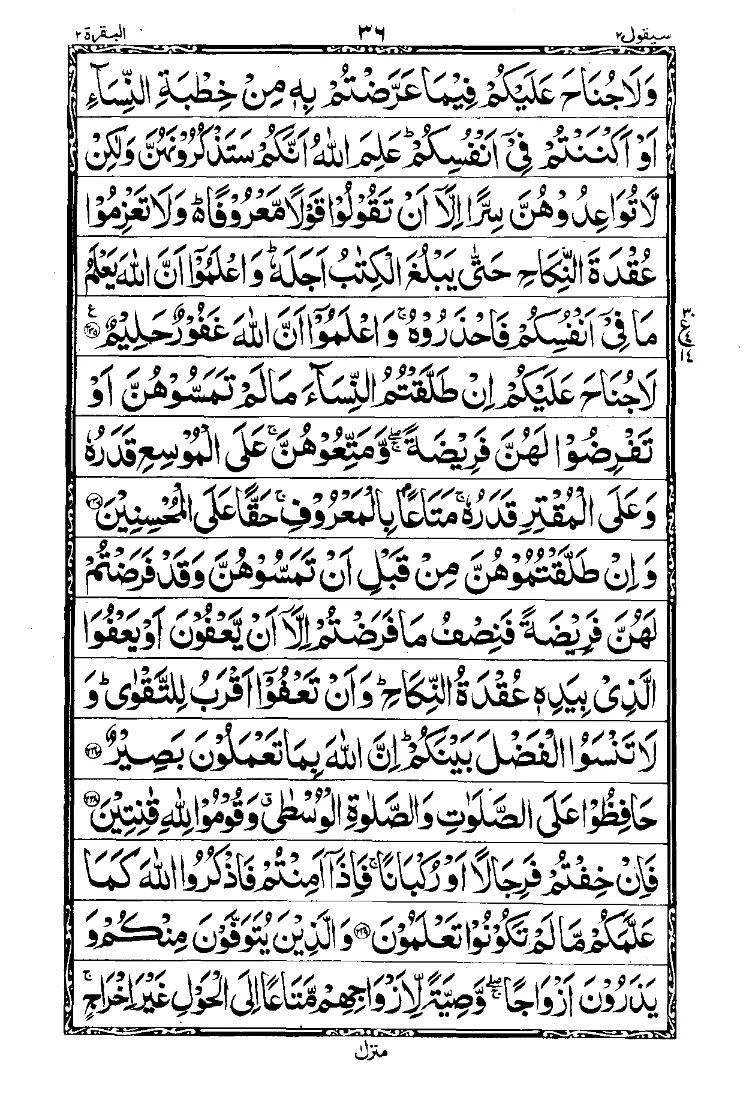 سيقول٢ ٣٦ البقرة ٢
وَلَاجُنَاحَ عَلَيْكُمْ فِيْمَا عَرَّضْتُمْ بِهٖ مِنْ خِطْبَةِ النِّسَآءِ
اَوْ اَكْنَنْتُمْ فِيْٓ اَنْفُسِكُمْ ؕ عَلِمَ اللّٰهُ اَنَّكُمْ سَتَذْكُرُوْنَهُنَّ وَلٰكِنْ
لَّا تُوَاعِدُوْهُنَّ سِرًّا اِلَّآ اَنْ تَقُوْلُوْا قَوْلًا مَّعْرُوْفًا ؕ۬ وَلَا تَعْزِمُوْا
عُقْدَةَ النِّكَاحِ حَتّٰى يَبْلُغَ الْكِتٰبُ اَجَلَهٗ ؕ وَاعْلَمُوْٓا اَنَّ اللّٰهَ يَعْلَمُ
مَا فِيْٓ اَنْفُسِكُمْ فَاحْذَرُوْهُ ۚ وَاعْلَمُوْٓا اَنَّ اللّٰهَ غَفُوْرٌ حَلِيْمٌ ﴿٢٣٥﴾ ع
لَاجُنَاحَ عَلَيْكُمْ اِنْ طَلَّقْتُمُ النِّسَآءَ مَا لَمْ تَمَسُّوْهُنَّ اَوْ
تَفْرِضُوْا لَهُنَّ فَرِيْضَةً ۖۚ وَّمَتِّعُوْهُنَّ ۚ عَلَى الْمُوْسِعِ قَدَرُهٗ
وَعَلَى الْمُقْتِرِ قَدَرُهٗ ۚ مَتَاعًاۢ بِالْمَعْرُوْفِ ۚ حَقًّا عَلَى الْمُحْسِنِيْنَ ﴿٢٣٦﴾
وَاِنْ طَلَّقْتُمُوْهُنَّ مِنْ قَبْلِ اَنْ تَمَسُّوْهُنَّ وَقَدْ فَرَضْتُمْ
لَهُنَّ فَرِيْضَةً فَنِصْفُ مَا فَرَضْتُمْ اِلَّآ اَنْ يَّعْفُوْنَ اَوْ يَعْفُوَا
الَّذِيْ بِيَدِهٖ عُقْدَةُ النِّكَاحِ ؕ وَاَنْ تَعْفُوْٓا اَقْرَبُ لِلتَّقْوٰى ؕ وَ
لَا تَنْسَوُا الْفَضْلَ بَيْنَكُمْ ؕ اِنَّ اللّٰهَ بِمَا تَعْمَلُوْنَ بَصِيْرٌ ﴿٢٣٧﴾
حَافِظُوْا عَلَى الصَّلَوٰتِ وَالصَّلٰوةِ الْوُسْطٰى ۗ وَقُوْمُوْا لِلّٰهِ قٰنِتِيْنَ ﴿٢٣٨﴾
فَاِنْ خِفْتُمْ فَرِجَالًا اَوْ رُكْبَانًا ۚ فَاِذَآ اَمِنْتُمْ فَاذْكُرُوا اللّٰهَ كَمَا
عَلَّمَكُمْ مَّا لَمْ تَكُوْنُوْا تَعْلَمُوْنَ ﴿٢٣٩﴾ وَالَّذِيْنَ يُتَوَفَّوْنَ مِنْكُمْ وَ
يَذَرُوْنَ اَزْوَاجًا ۖۚ وَّصِيَّةً لِّاَزْوَاجِهِمْ مَّتَاعًا اِلَى الْحَوْلِ غَيْرَ اِخْرَاجٍ ۚ
منزل